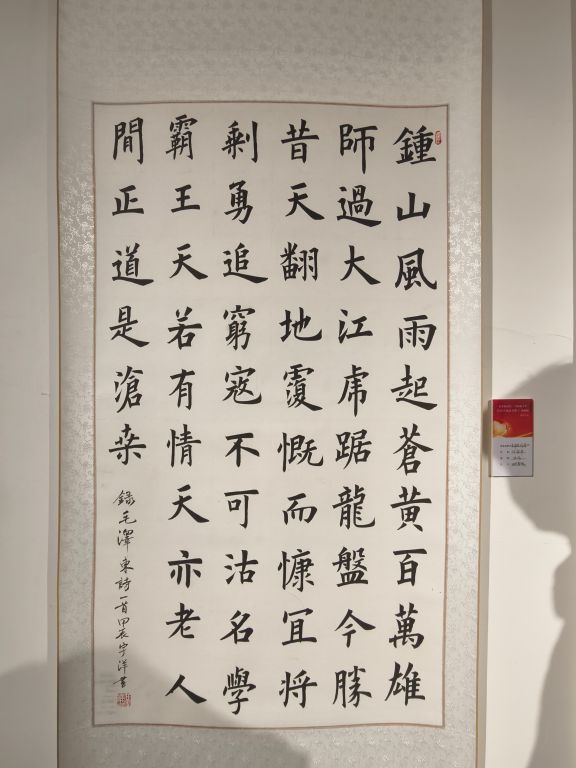 鍾山風雨起蒼黃百萬雄
師過大江虎踞龍盤今勝
昔天翻地覆慨而慷宜将
剩勇追窮寇不可沽名學
霸王天若有情天亦老人
間正道是滄桒
錄毛澤東詩一首甲辰宇洋書